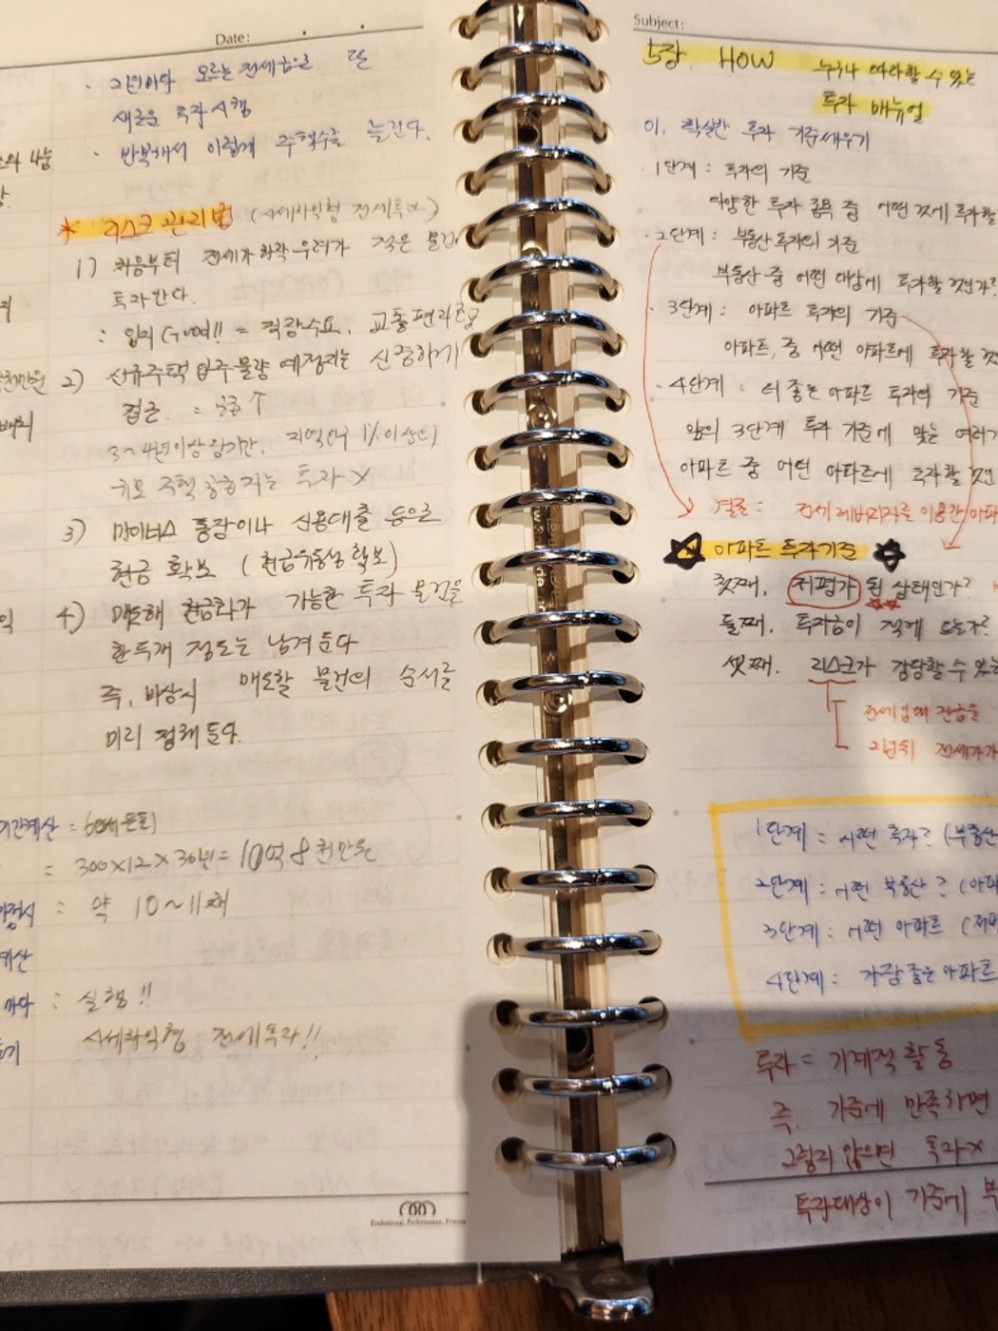 Date:
· 2년마다 오르는 전세금으로 또
새로운 투자시행
· 반복해서 이렇게 주택수를 늘린다.
* 리스크 관리법 (시세차익형 전세투자)
1) 처음부터 전세가 하락 우려가 적은 물건
투자한다.
: 입지 Good!! = 직장수요, 교통편리한곳
2) 신규주택 입주물량 예정지는 신중하게
접근. = 공급↑
3~4년이상 장기간, 지역인구 1%이상의
규모 주택 공급지는 투자X
3) 마이너스 통장이나 신용대출 등으로
현금 확보 (현금유동성 확보)
4) 매도해 현금화가 가능한 투자 물건을
한두개 정도는 남겨둔다
즉, 비상시 매도할 물건의 순서를
미리 정해둔다.
= 60세은퇴
= 300×12×30년 = 10억 8천만원
: 약 10~11채
: 실행!!
시세차익형 전세투자!!
Professional, Performance, Process
Subject:
5장. HOW 누구나 따라할 수 있는
투자 매뉴얼
01. 확실한 투자 기준세우기
· 1단계 : 투자의 기준
다양한 투자 종목 중 어떤 것에 투자할
· 2단계 : 부동산투자의 기준
부동산 중 어떤 대상에 투자할 것인가?
· 3단계 : 아파트 투자의 기준
아파트, 중 어떤 아파트에 투자할 것
· 4단계 : 더 좋은 아파트 투자의 기준
앞의 3단계 투자 기준에 맞는 여러가
아파트 중 어떤 아파트에 투자할 것인
결론 : 전세 레버리지를 이용한 아파
☆ 아파트 투자기준 ☆
첫째, 저평가 된 상태인가?
둘째, 투자금이 적게 드는가?
셋째, 리스크가 감당할 수 있는
전세임대 잔금을
2년뒤 전세가가
1단계 : 어떤 투자? (부동산
2단계 : 어떤 부동산? (아파
3단계 : 어떤 아파트 (저평
4단계 : 가장 좋은 아파트
투자 = 기계적 활동
즉, 기준에 만족하면
그렇지 않으면 투자X
투자대상이 기준에 부